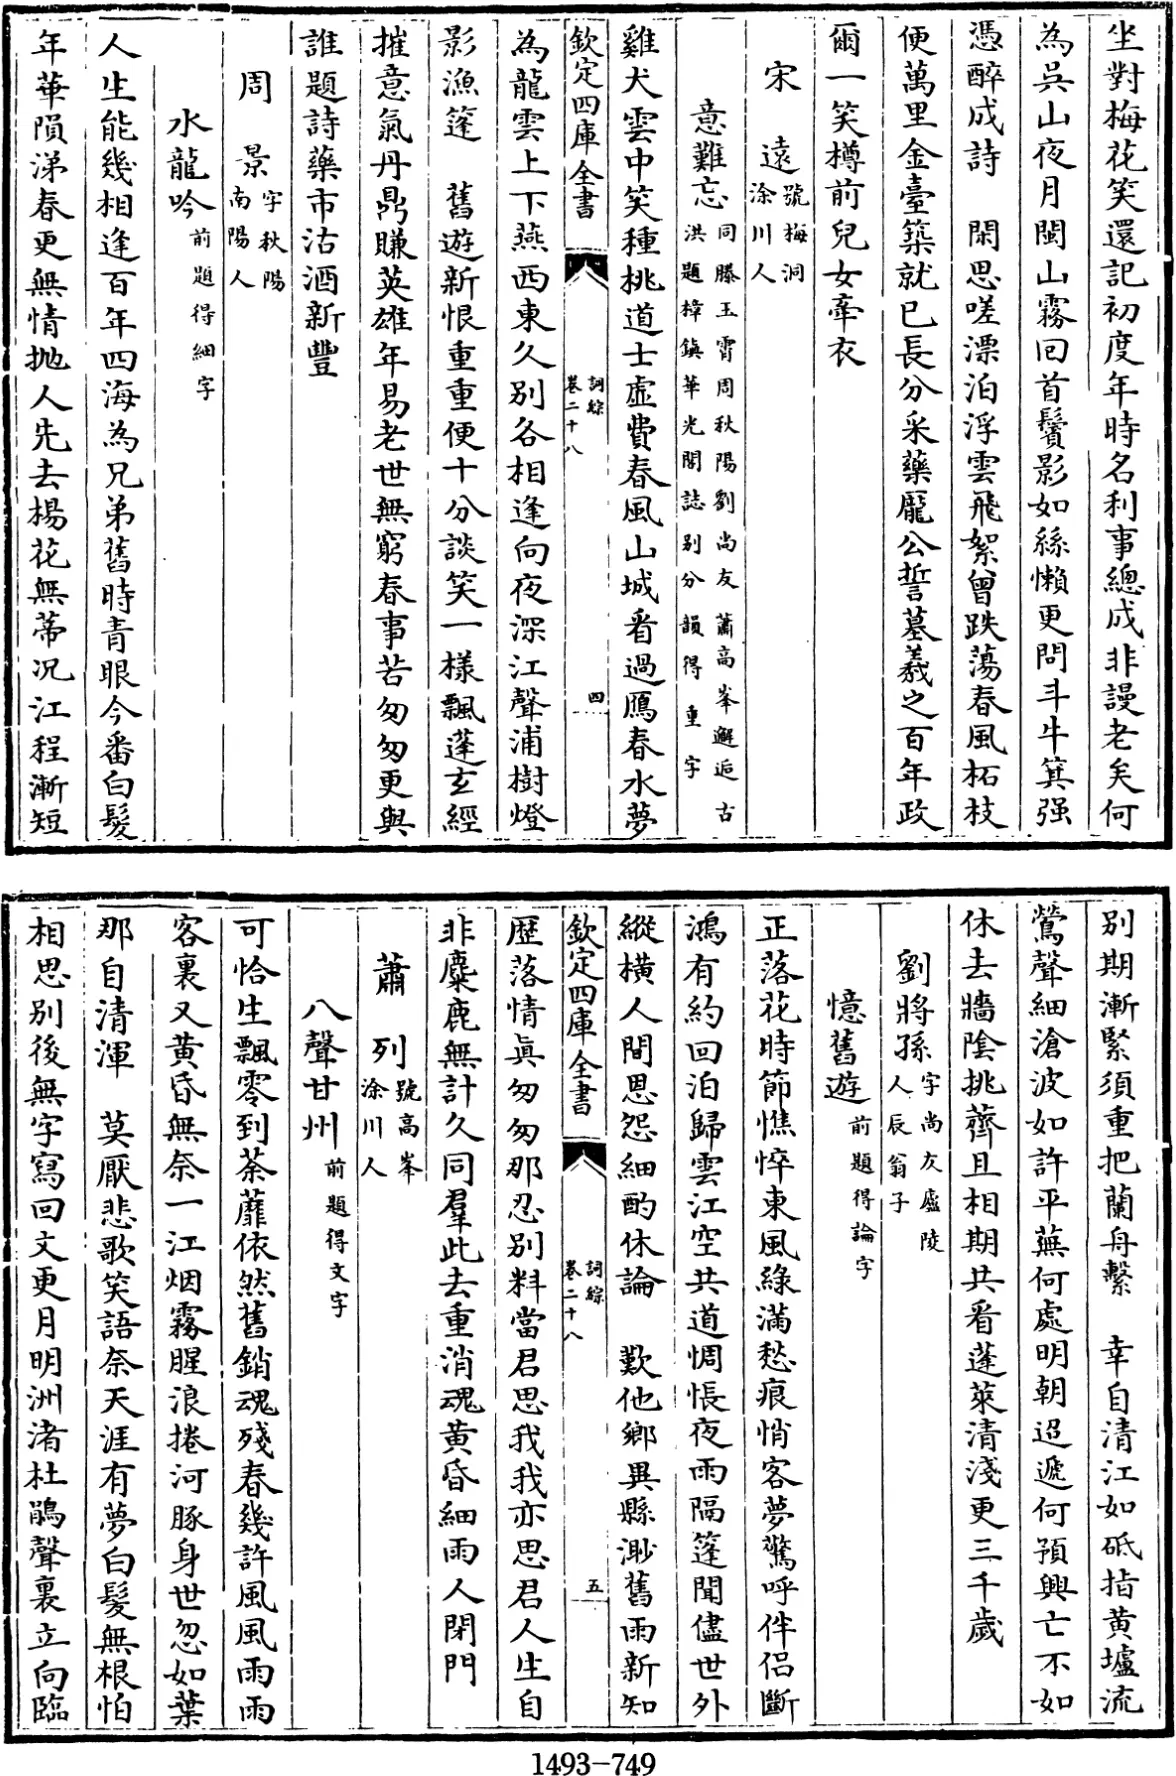 坐對梅花笑還記初度年時名利事總成非謾老矣何
為吳山夜月閩山霧回首鬢影如絲懶更問斗牛箕强
憑醉成詩　閑思嗟漂泊浮雲飛絮曾跌蕩春風柘枝
便萬里金臺築就已長分采藥龎公誓墓羲之百年政
爾一笑樽前兒女牽衣
宋　遠號梅洞涂川人
意難忘同滕玉霄周秋陽劉尚友蕭高峯邂逅古洪題樟鎮華光閣誌别分韻得重字
雞犬雲中笑種桃道士虚費春風山城看過鴈春水夢
欽定四庫全書
詞綜
卷二十八
四
為龍雲上下燕西東久别各相逢向夜深江聲浦樹燈
影漁篷　舊遊新恨重重便十分談笑一様飄蓬玄經
摧意氣丹鼎賺英雄年易老世無窮春事苦匆匆更與
誰題詩藥市沽酒新豐
周　景字秋陽南陽人
水龍吟前題得細字
人生能幾相逢百年四海為兄弟舊時青眼今番白髮
年華隕涕春更無情抛人先去楊花無蒂况江程漸短
别期漸緊須重把蘭舟繫　幸自清江如砥指黄壚流
鶯聲細滄波如許平蕪何處明朝迢遞何預興亡不如
休去牆陰挑薺且相期共看蓬萊清淺更三千歲
劉將孫字尚友廬陵人辰翁子
憶舊遊前題得論字
正落花時節憔悴東風緑滿愁痕悄客夢驚呼伴侣斷
鴻有約回泊歸雲江空共道惆悵夜雨隔篷聞儘世外
縱横人間恩怨細酌休論　歎他鄉異縣渺舊雨新知
欽定四庫全書
詞綜
卷二十八
五
歷落情真匆匆那忍别料當君思我我亦思君人生自
非麋鹿無計久同羣此去重消魂黄昏細雨人閉門
蕭　列號高峯涂川人
八聲甘州前題得文字
可恰生飄零到荼蘼依然舊銷魂殘春幾許風風雨雨
客裏又黄昏無奈一江烟霧腥浪捲河豚身世忽如葉
那自清渾　莫厭悲歌笑語奈天涯有夢白髮無根怕
相思别後無字寫回文更月明洲渚杜鵑聲裏立向臨
1493—749